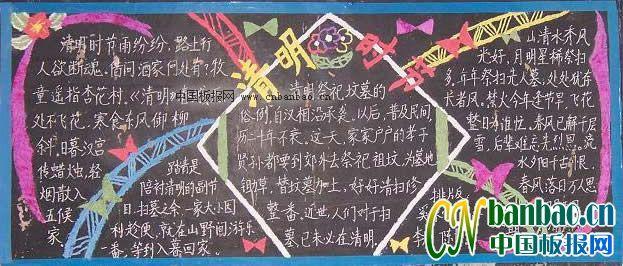 清明
清明时节雨纷纷,路上行
人欲断魂。借问酒家何处有?牧
童遥指杏花村。《清明》
处不飞花,寒食东风御柳
斜。日暮汉宫
传蜡烛,轻
烟散入
五侯
家
踏青是
陪衬清明的副节
日,扫墓之余,一家大小因
利趁便,就在山野间游乐
一番,等到入暮回家。
清明祭祀坟墓的
俗例,自汉相沿承袭。以后,普及民间,
历二千年不衰。这一天,家家户户的孝子
贤孙都要到郊外去祭祀祖坟,为墓地
锄草,替坟墓加土,好好清扫修
整一番。近世,人们对于扫
墓,已未必在清明。
山清水秀风
光好,月明星稀祭扫
多。年年祭扫先人墓,处处犹存
长者风。禁火今年逢节早,飞花
整日
春风已解千层
雪,后辈难忘先烈恩。流
水夕阳千古恨,
春风落日万人思
排版
中国板报网
www.cnbanbao.cn
CNbanbao.cn
中国板报网